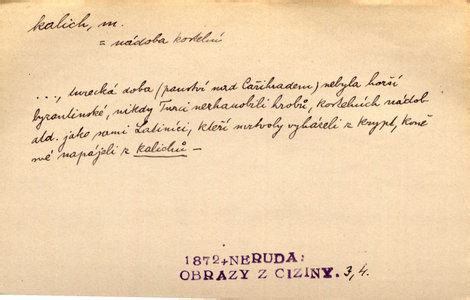 kalich, m.
= nádoba kostelní
..., turecká doba (panství nad Cařihradem) nebyla horší
byzantinské, nikdy Turci nezhanobili hrobů, kostelních nádob
atd. jako sami Latiníci, kteří mrtvoly vyházeli z krypt, koně
své napájeli z kalichů —
1872+NERUDA:
OBRAZY Z CIZINY. 3,4.